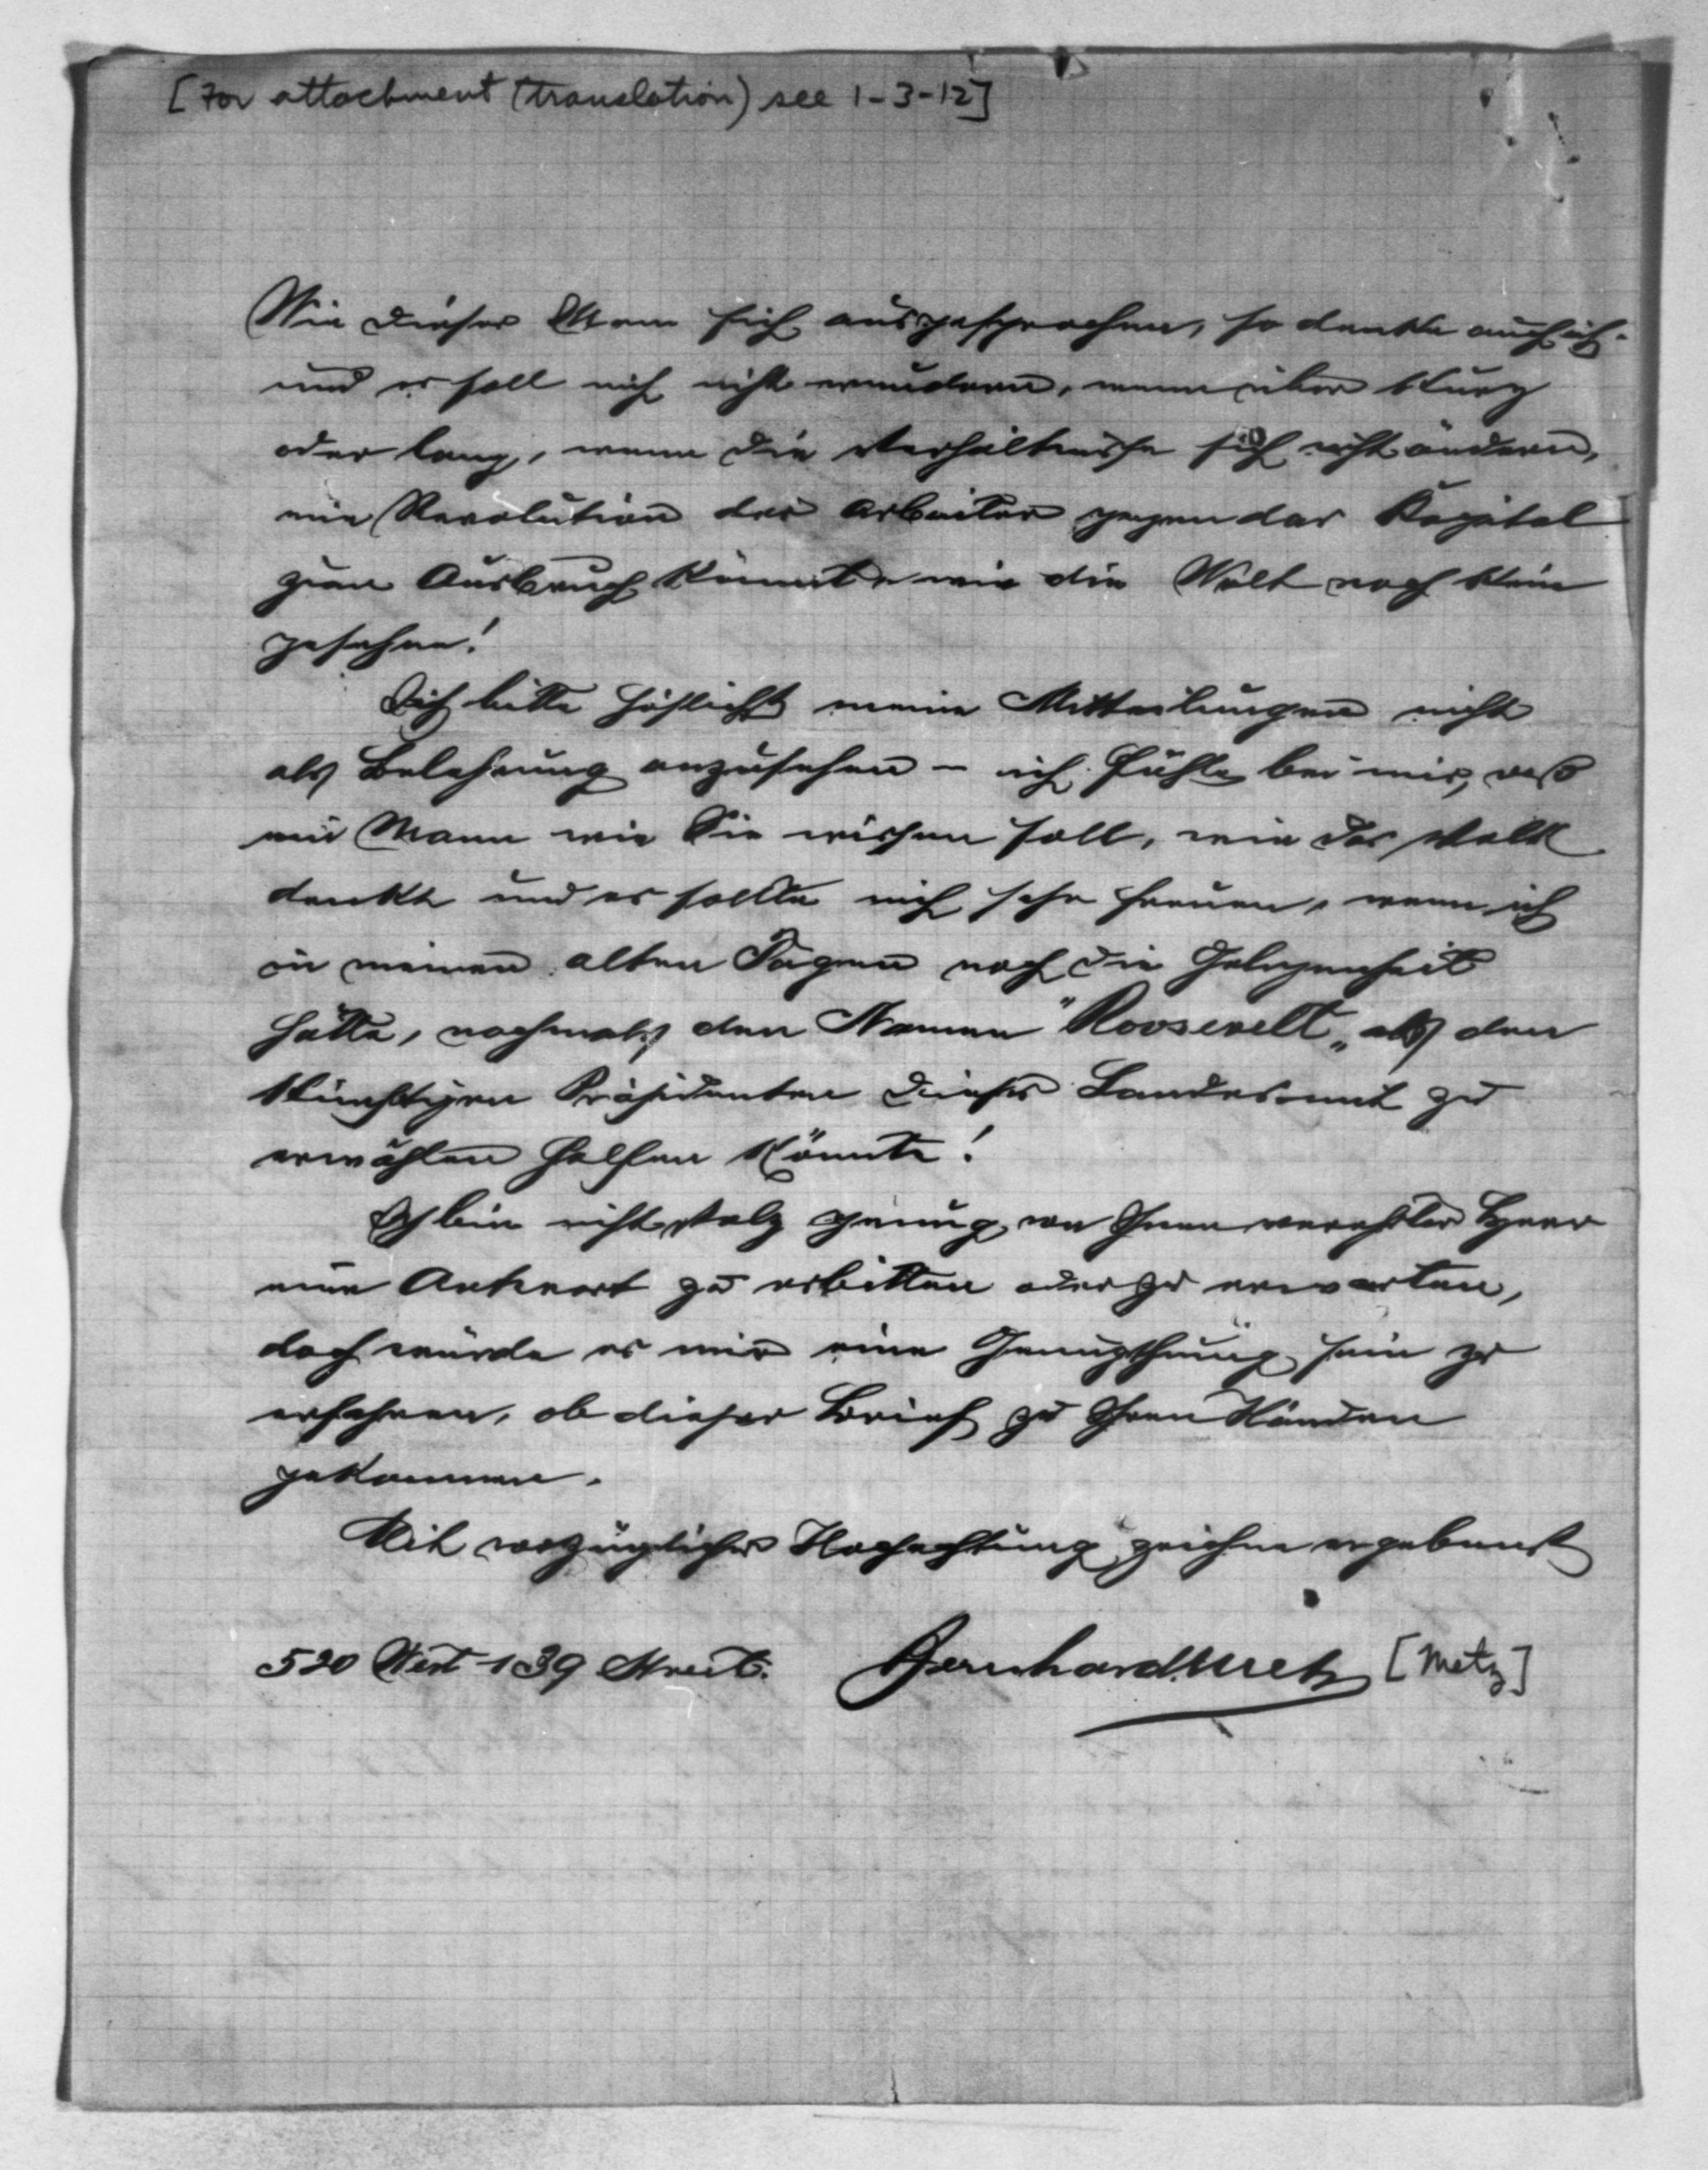 [For attachment (translation) see 1-3-12]
Wie dieser Mann sich ausgesprochen, so denke auch ich.
und es soll mich nicht wundern, wenn über kurz
oder lang, wenn die Verhältnisse sich nicht ändern,
eine Revolution der Arbeiter gegen das Kapital
zum Ausbruch kommt, wie die Welt noch keine
gesehen!
Ich bitte höflichst meine Mitteilungen nicht
als Belehrung anzusehen – ich fühle bei mir, daß
ein Mann wie Sie wissen soll, wie das Volk
denkt und es sollte mich sehr freuen, wenn ich
in meinen alten Tagen noch die Gelegenheit
hätte, nochmals den Namen "Roosevelt„ als den
künftigen Präsidenten dieses Landes mit zu
erwählen helfen könnte!
Ich bin nicht stolz genug, von Ihnen verehrter Herr
eine Antwort zu erbitten oder zu erwarten,
doch würde es mir eine Genugthuung sein zu
erfahren, ob dieser Brief zu Ihren Händen
gekommen.
Mit vorzüglicher Hochachtung zeichne ergebenst
520 West 139 Street. Bernhard Metz [Metz]